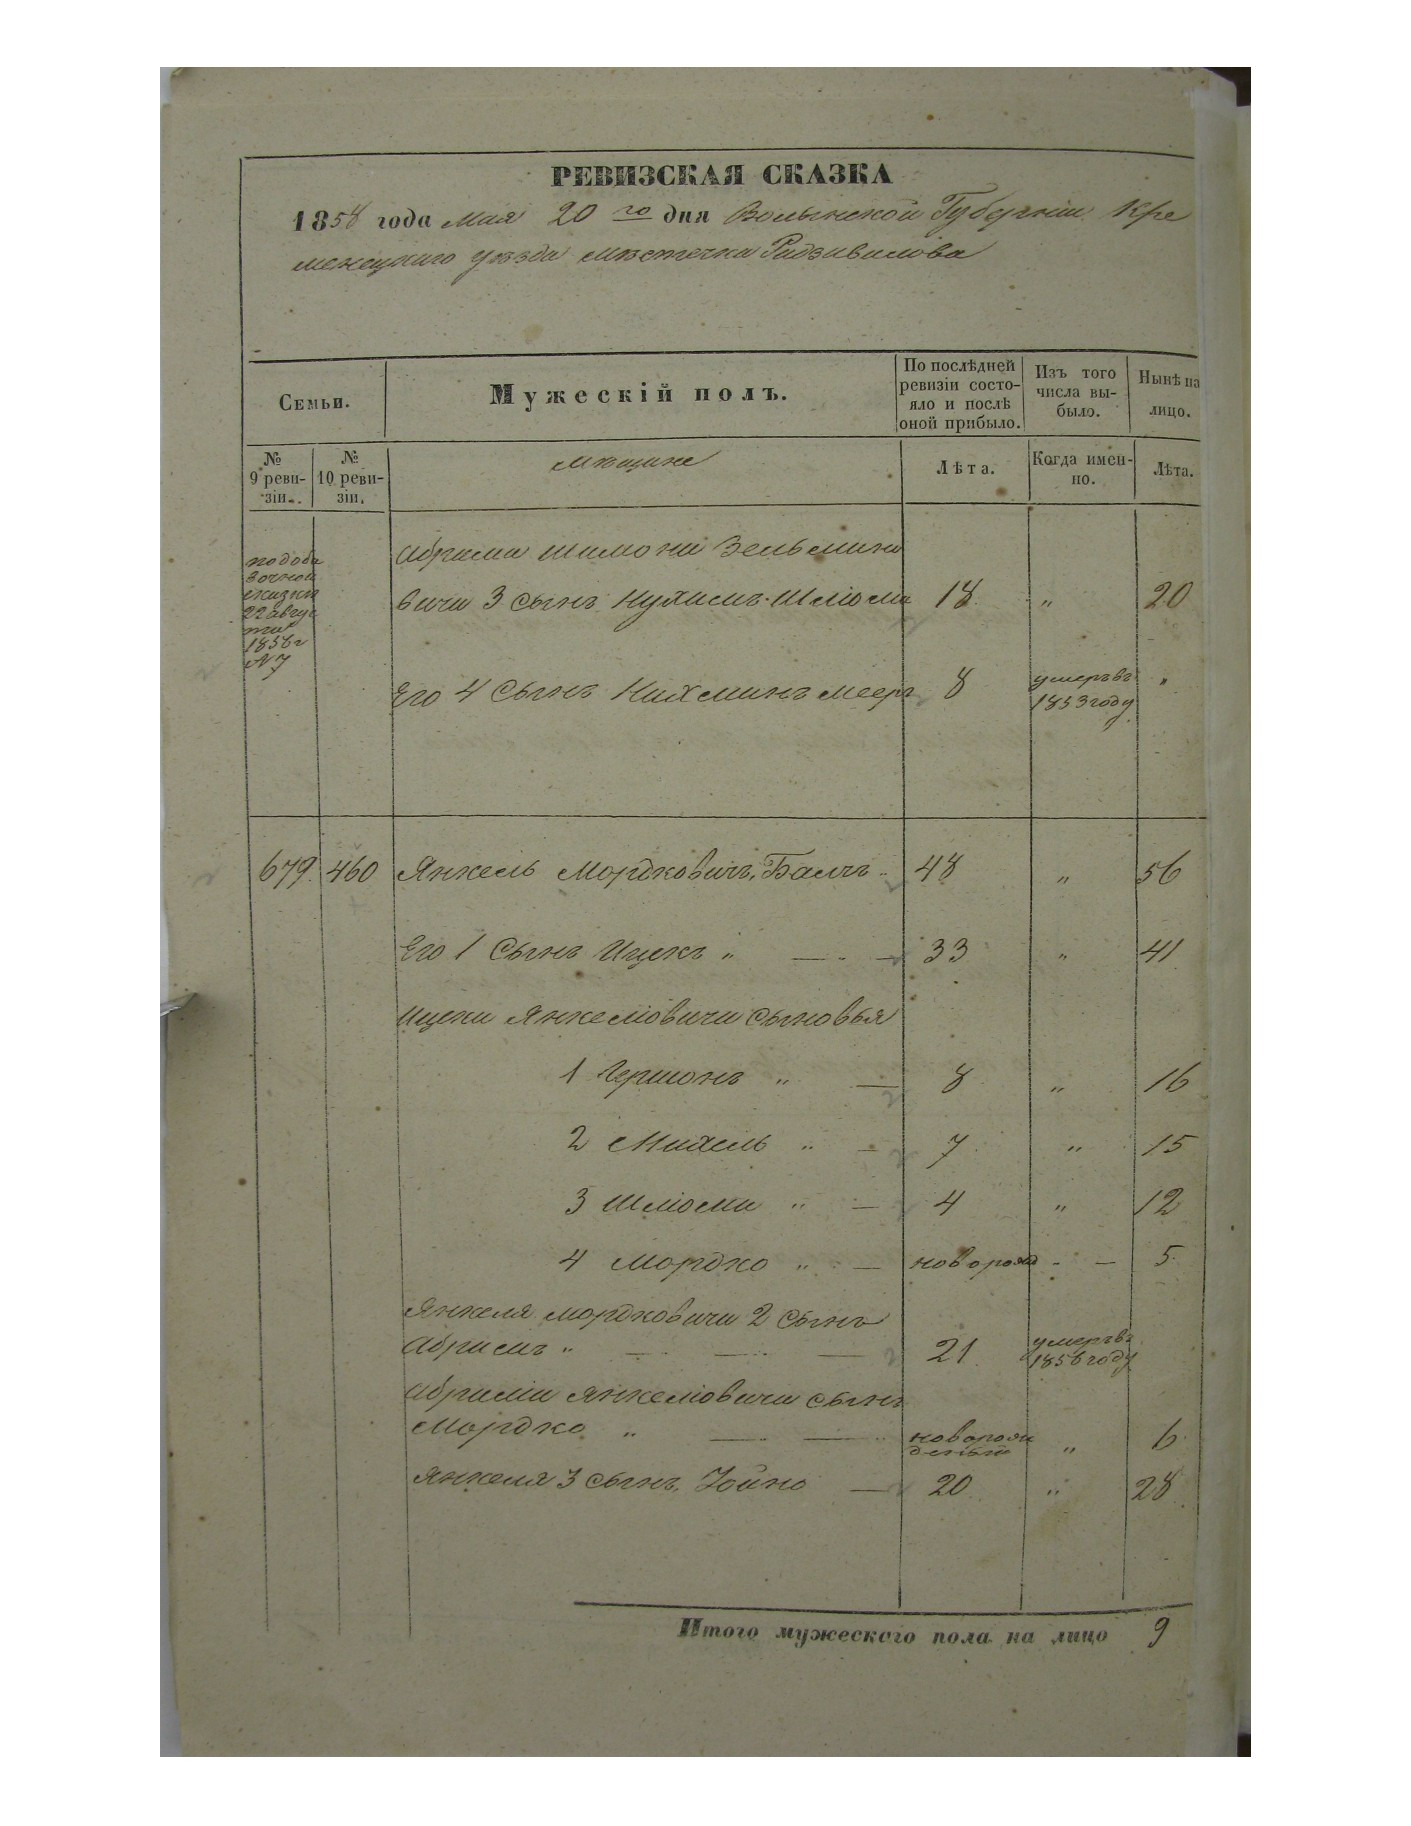 РЕВИЗСКАЯ СКАЗКА
1858 года Мая 20 го дня Волынской Губерніи Кре
менецкаго уѣзда мѣстечка Радзивилова
Семьи.
Мужескій полъ.
По послѣдней ревизіи состо-
яло и послѣ
оной прибыло.
Изъ того
числа вы-
было.
Нынѣ на
лицо.
№
9 реви-
зіи.
№
10 реви-
зіи.
Мѣщане
Лѣта.
Когда имен-
но.
Лѣта.
по доба
вочной
сказки
22 авгус
та
1858 г
№ 7
Абрама Шимона Зельмана
вича 3 сынъ Нухимъ-Шліома 18 „ 20
Его 4 сынъ Нахманъ Мееръ 8 умеръ въ 1853 году „
679 460 Янкель Мордковичъ Балчъ 48 „ 56
Его 1 сынъ Ицекъ „ 33 „ 41
Ицека Янкеліовича сыновья
1 Гершонъ „ 8 „ 16
2 Михель „ 7 „ 15
3 Шліома „ 4 „ 12
4 Мордко „ новорожд - 5
Янкеля Мордковича 2 сынъ
Абрамъ „ 21 умеръ въ 1856 году
Абрама Янкеліовича сынъ
Мордко „ новорож денный „ 6
Янкеля 3 сынъ, Іойно 20 „ 28
Итого мужескаго пола на лицо 9